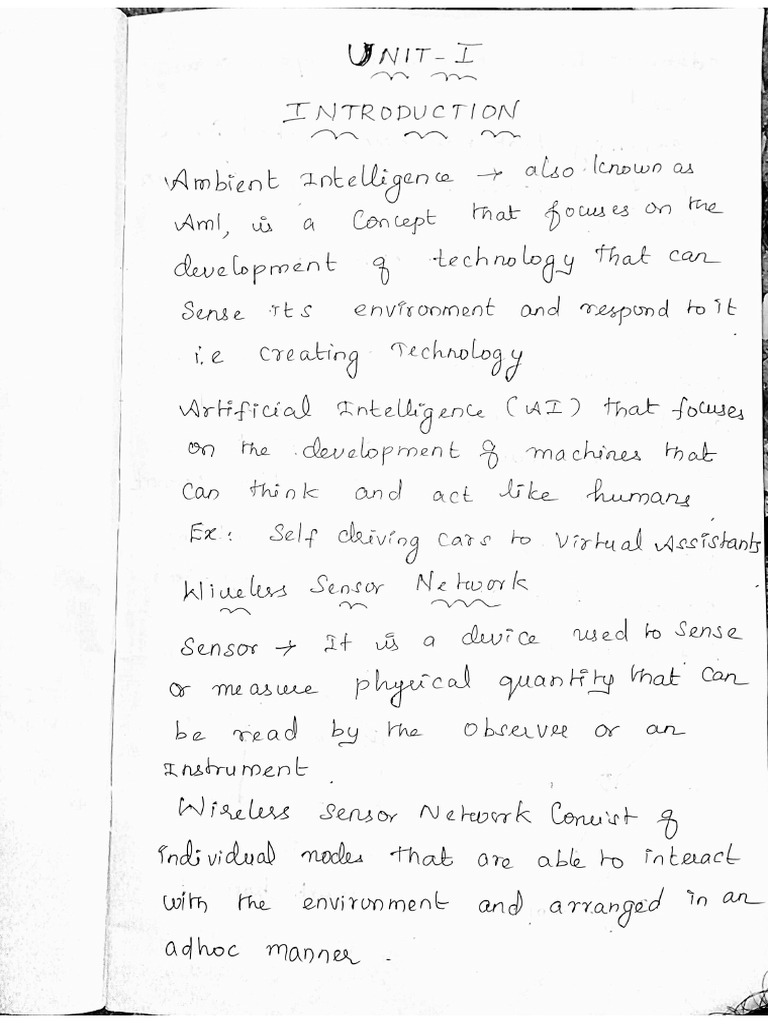 UNIT-I
INTRODUCTION
Ambient Intelligence → also known as
AmI, is a Concept that focuses on the
development of technology that can
Sense its environment and respond to it
i.e creating Technology
Artificial Intelligence (AI) that focuses
on the development of machines that
can think and act like humans
Ex: Self driving cars to Virtual Assistants
Wireless Sensor Network
Sensor → It is a device used to sense
or measure physical quantity that can
be read by the Observer or an
Instrument.
Wireless sensor Network Consist of
individual nodes that are able to interact
with the environment and arranged in an
adhoc manner.